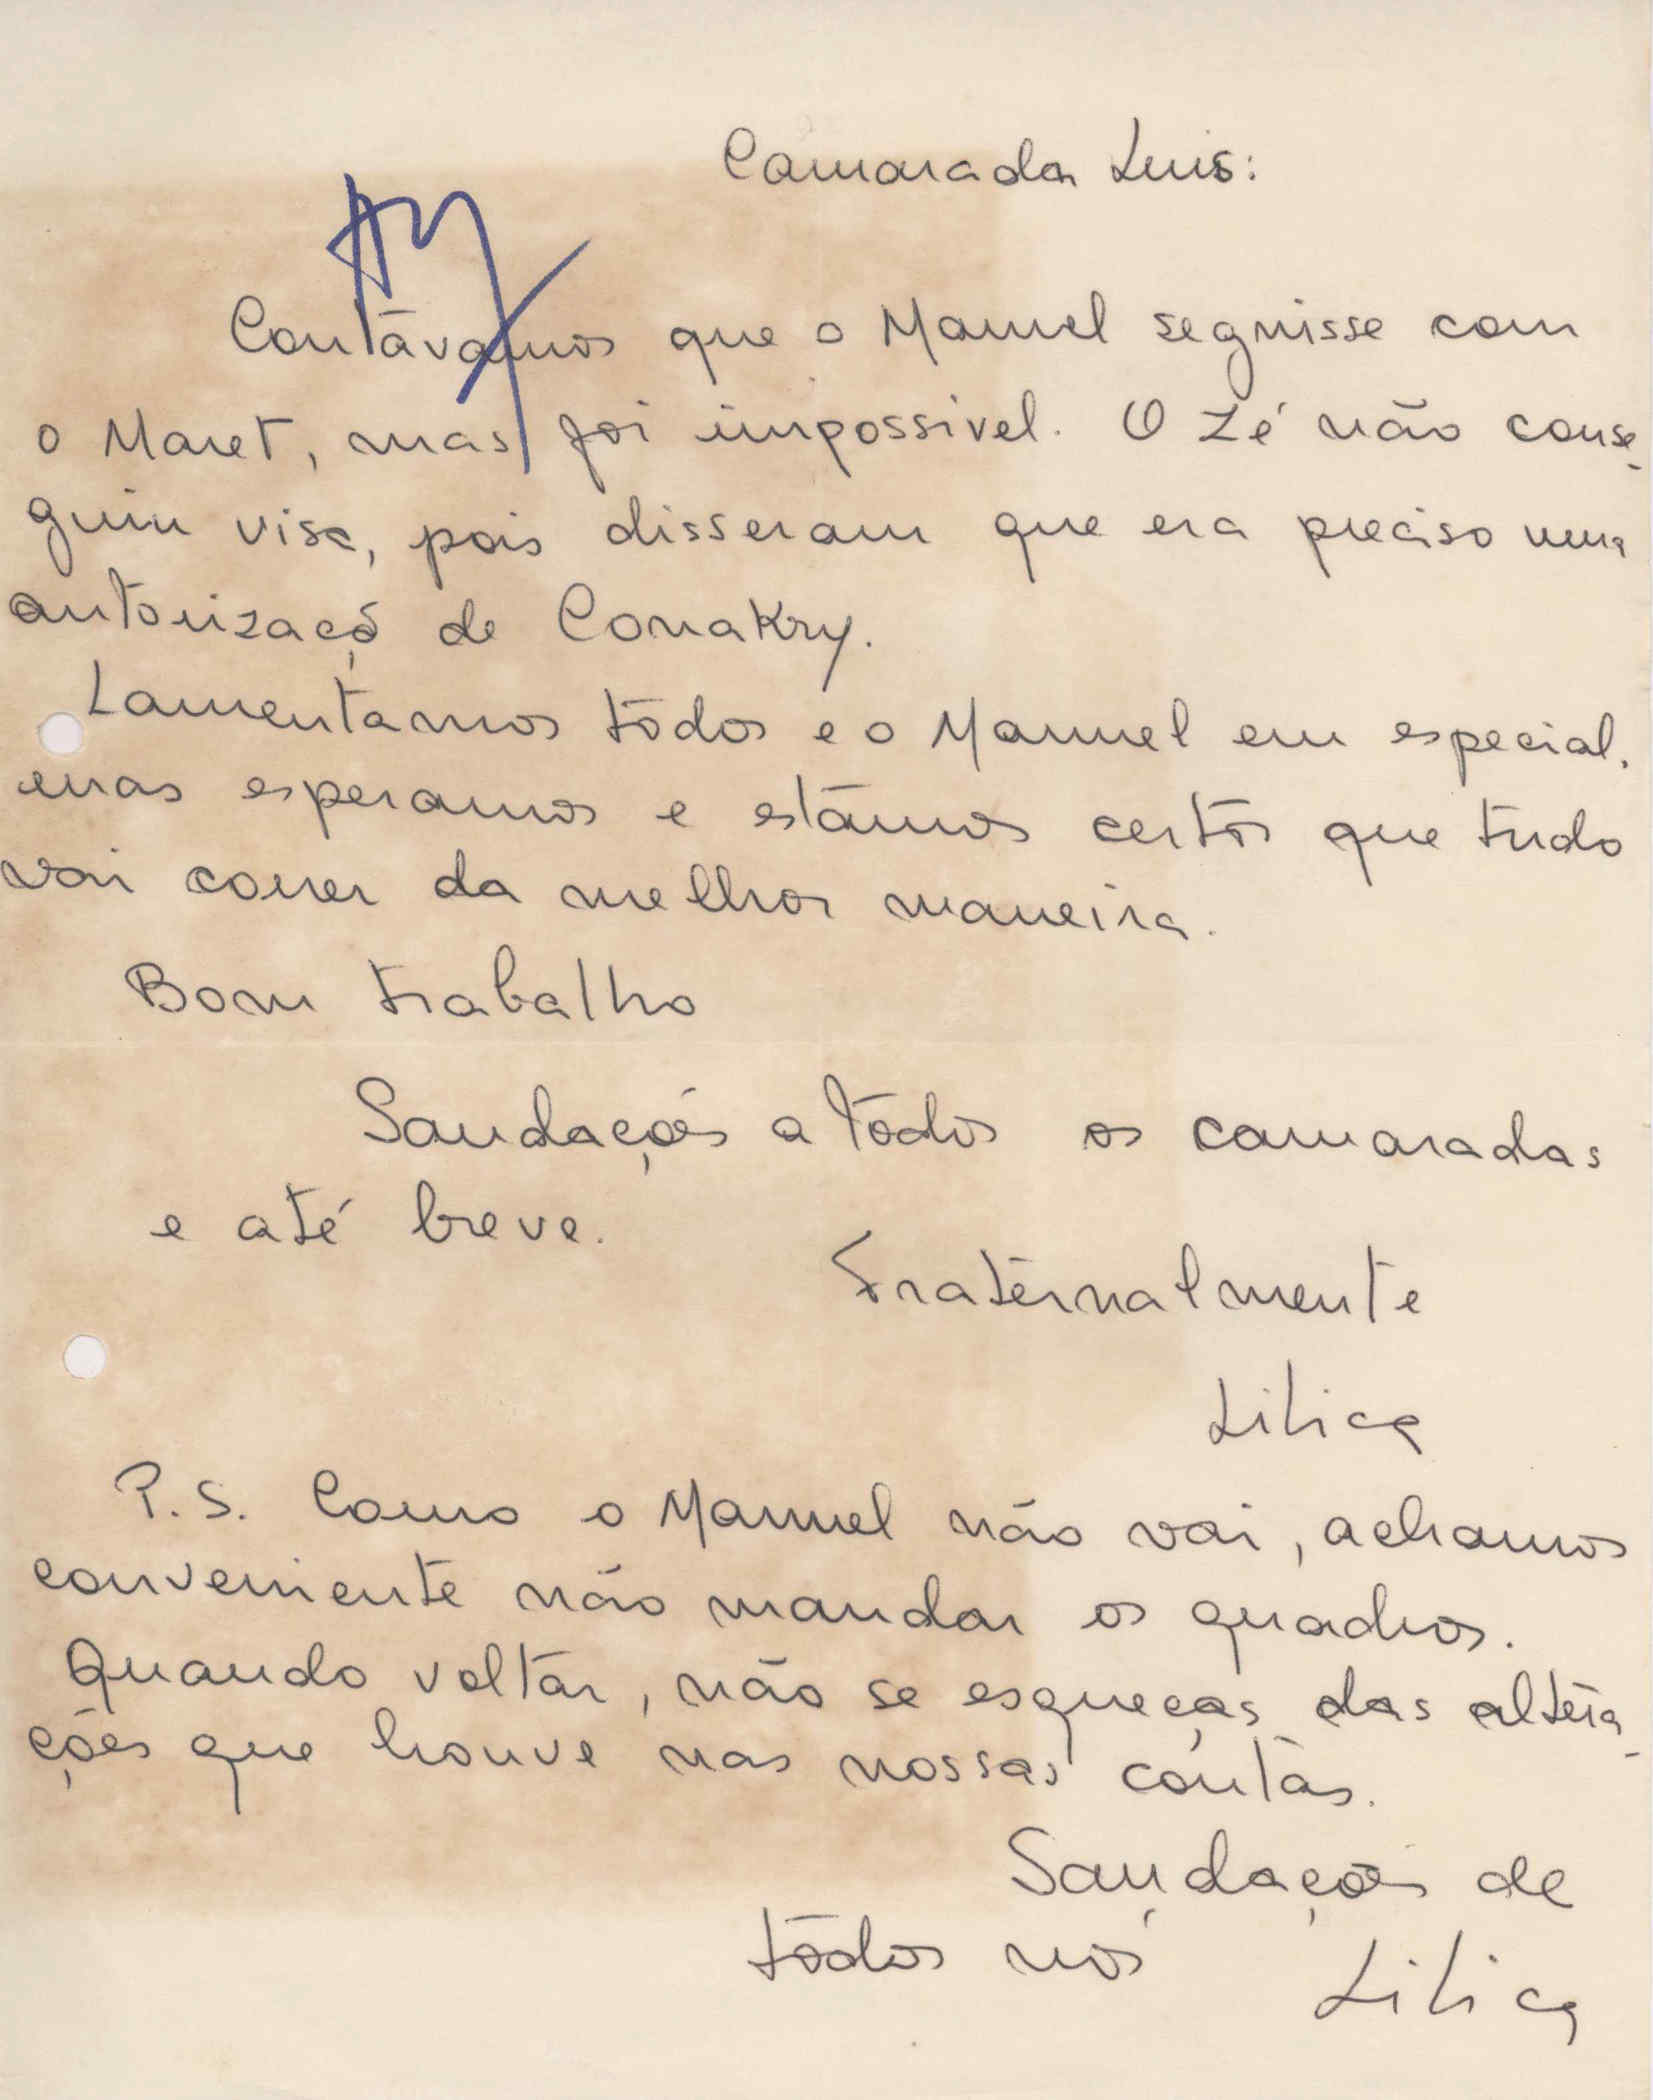 Camarada Luis:
Contávamos que o Manuel seguisse com
o Maret, mas foi impossivel. O Zé não conse-
guiu visa, pois disseram que era preciso uma
autorizaçõ de Conakry.
Lamentamos todos e o Manuel em especial,
mas esperamos e estamos certos que tudo
vai correr da melhor maneira.
Bom trabalho
Saudações a todos os camaradas
e até breve.
Fraternalmente
Lilica
P.S. Como o Manuel não vai, achamos
conveniente não mandar os quadros.
Quando voltar, não se esqueças das altera-
ções que houve nas nossas contas.
Saudações de
todos nós
Lilica